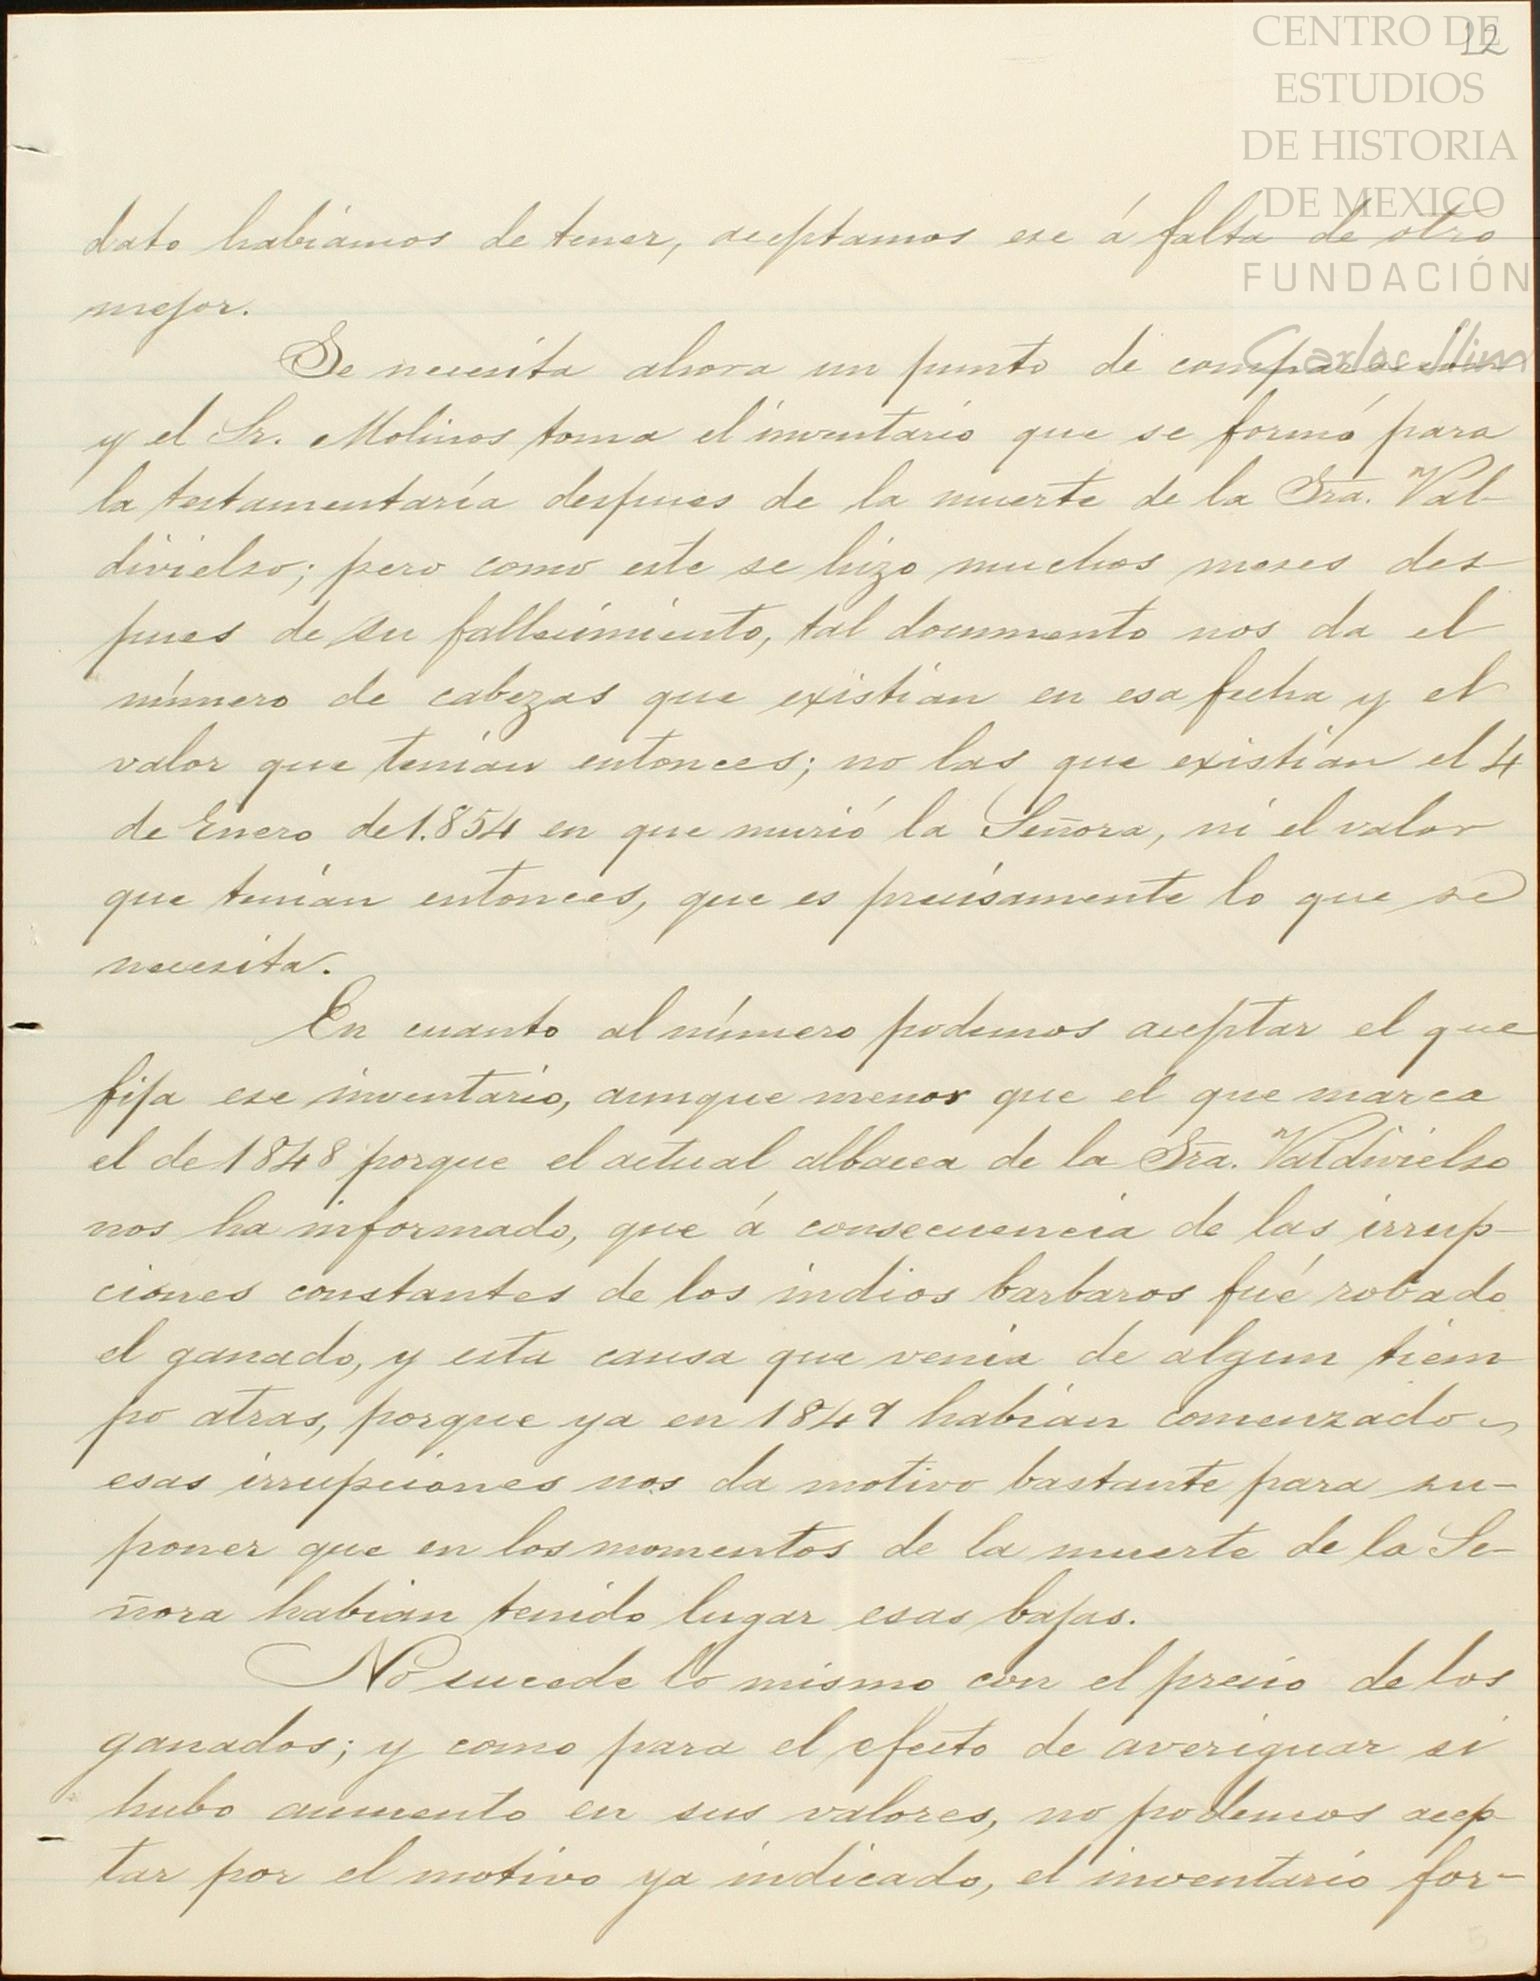 CENTRO DE
ESTUDIOS
DE HISTORIA
DE MEXICO
FUNDACIÓN
Carlos Slim
12
dato habiamos de tener, aceptamos ese á falta de otro
mejor.
Se necesita ahora un punto de comparacion
y el Sr. Molinos toma el inventario que se formó para
la testamentaría despues de la muerte de la Sra. Val-
divielso; pero como este se hizo muchos meses des
pues de su fallecimiento, tal documento nos da el
número de cabezas que existian en esa fecha y el
valor que tenian entonces; no las que existian el 4
de Enero de 1.854 en que murió la Señora, ni el valor
que tenian entonces, que es precisamente lo que se
necesita.
En cuanto al número podemos aceptar el que
fija ese inventario, aunque menor que el que marca
el de 1848 porque el actual albacea de la Sra. Valdivielso
nos ha informado, que á consecuencia de las irrup-
ciones constantes de los indios barbaros fué robado
el ganado, y esta causa que venia de algun tiem
po atras, porque ya en 1849 habian comenzado
esas irrupciones nos da motivo bastante para su-
poner que en los momentos de la muerte de la Se-
ñora habian tenido lugar esas bajas.
No sucede lo mismo con el precio de los
ganados; y como para el efecto de averiguar si
hubo aumento en sus valores, no podemos acep
tar por el motivo ya indicado, el inventario for-
5